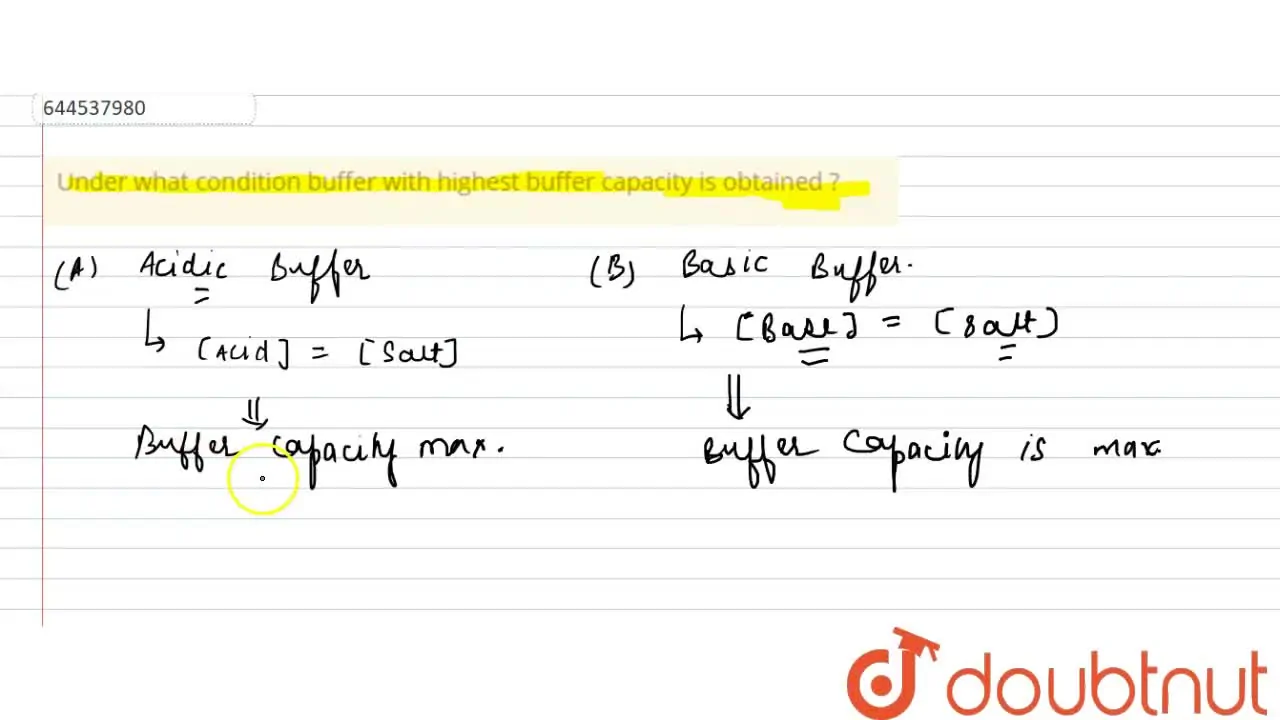 644537980
Under what condition buffer with highest buffer capacity is obtained ?
(A) Acidic Buffer
(B) Basic Buffer.
↳ [Acid] = [Salt]
↳ [Base] = [Salt]
⇓
⇓
Buffer capacity max.
Buffer Capacity is max.
doubtnut